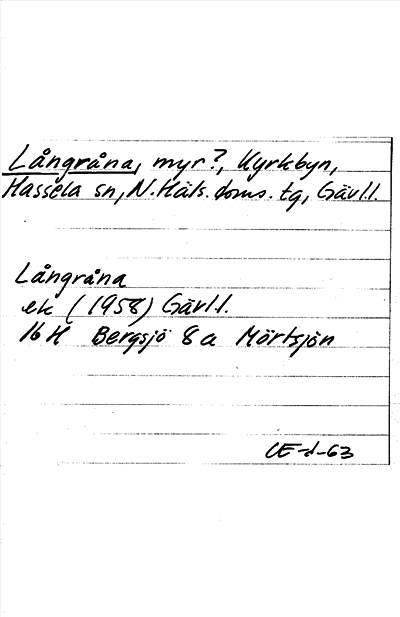 Långråna, myr?, Kyrkbyn,
Hassela sn, N.Häls. doms. tg, Gävl.l.
Långråna
ek (1958) Gävl.l.
16 H Bergsjö 8 a Mörtsjön
CE-d-63